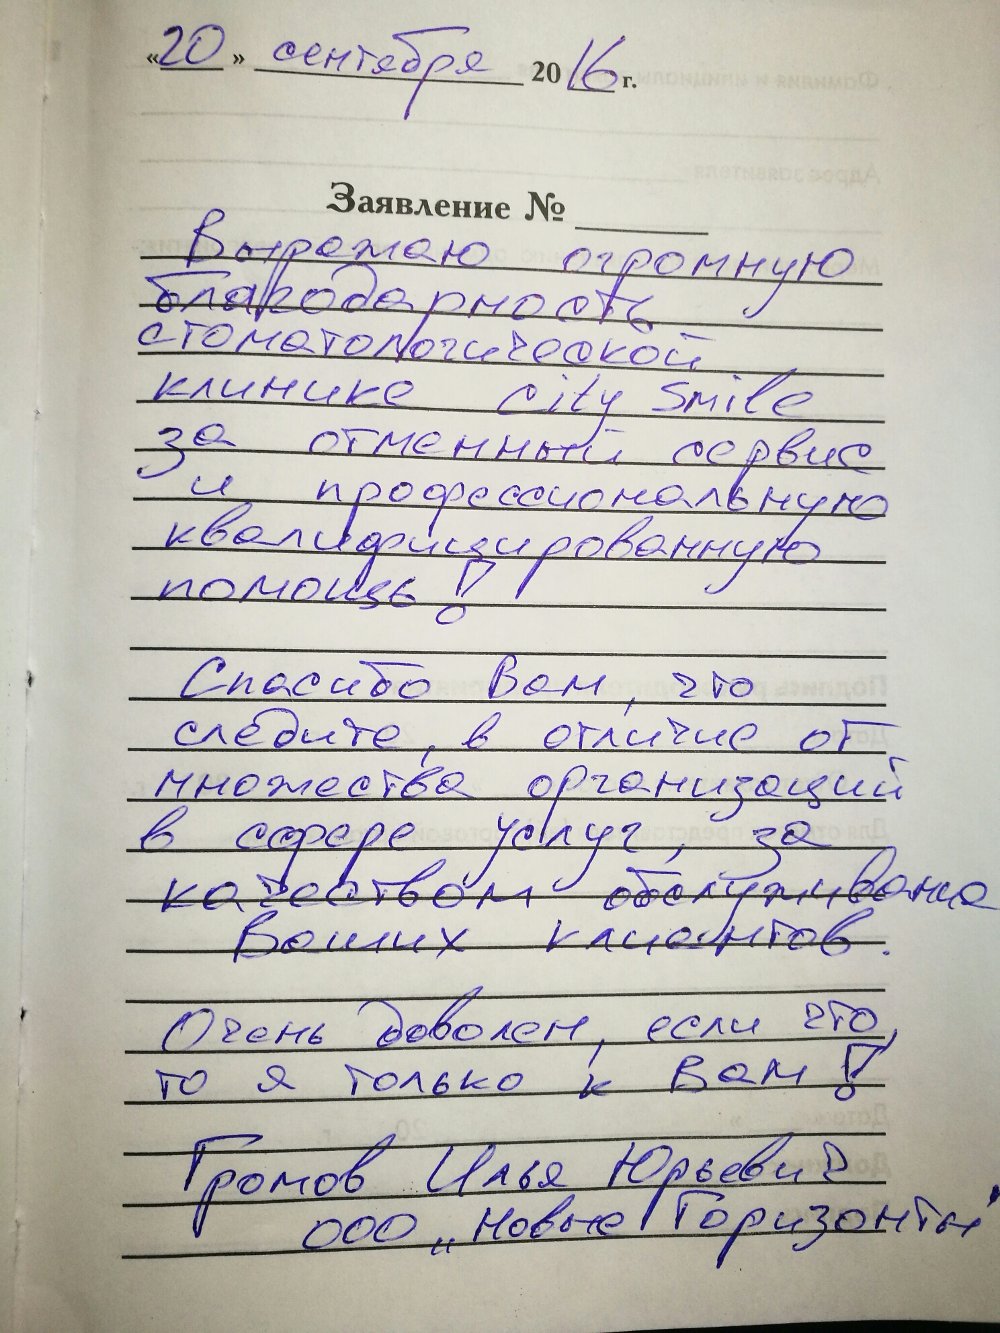 «20» сентября 2016 г.
Заявление №
Выражаю огромную
благодарность
стоматологической
клинике City Smile
за отменный сервис
и профессиональную
квалифицированную
помощь!
Спасибо Вам, что
следите, в отличие от
множества организаций
в сфере услуг, за
качеством обслуживания
Ваших клиентов.
Очень доволен, если что,
то я только к Вам!
Громов Илья Юрьевич
ООО „Новые Горизонты"